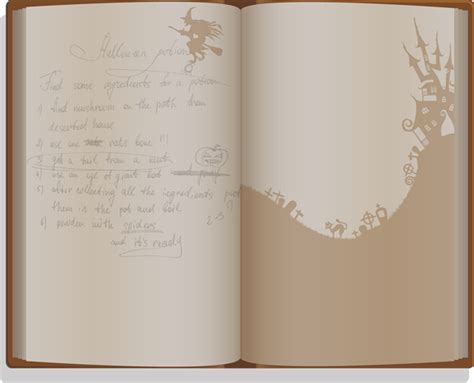 Halloween potion
Find some ingredients for a potion
1) find mushroom on the path from
deserted house
2) use rats bone !!!
3) get a tail from a
4) use an eye of giants bat
5) after collecting all the ingredients
them is the pot and boil
2-3
6) powder with spiders
and it's ready